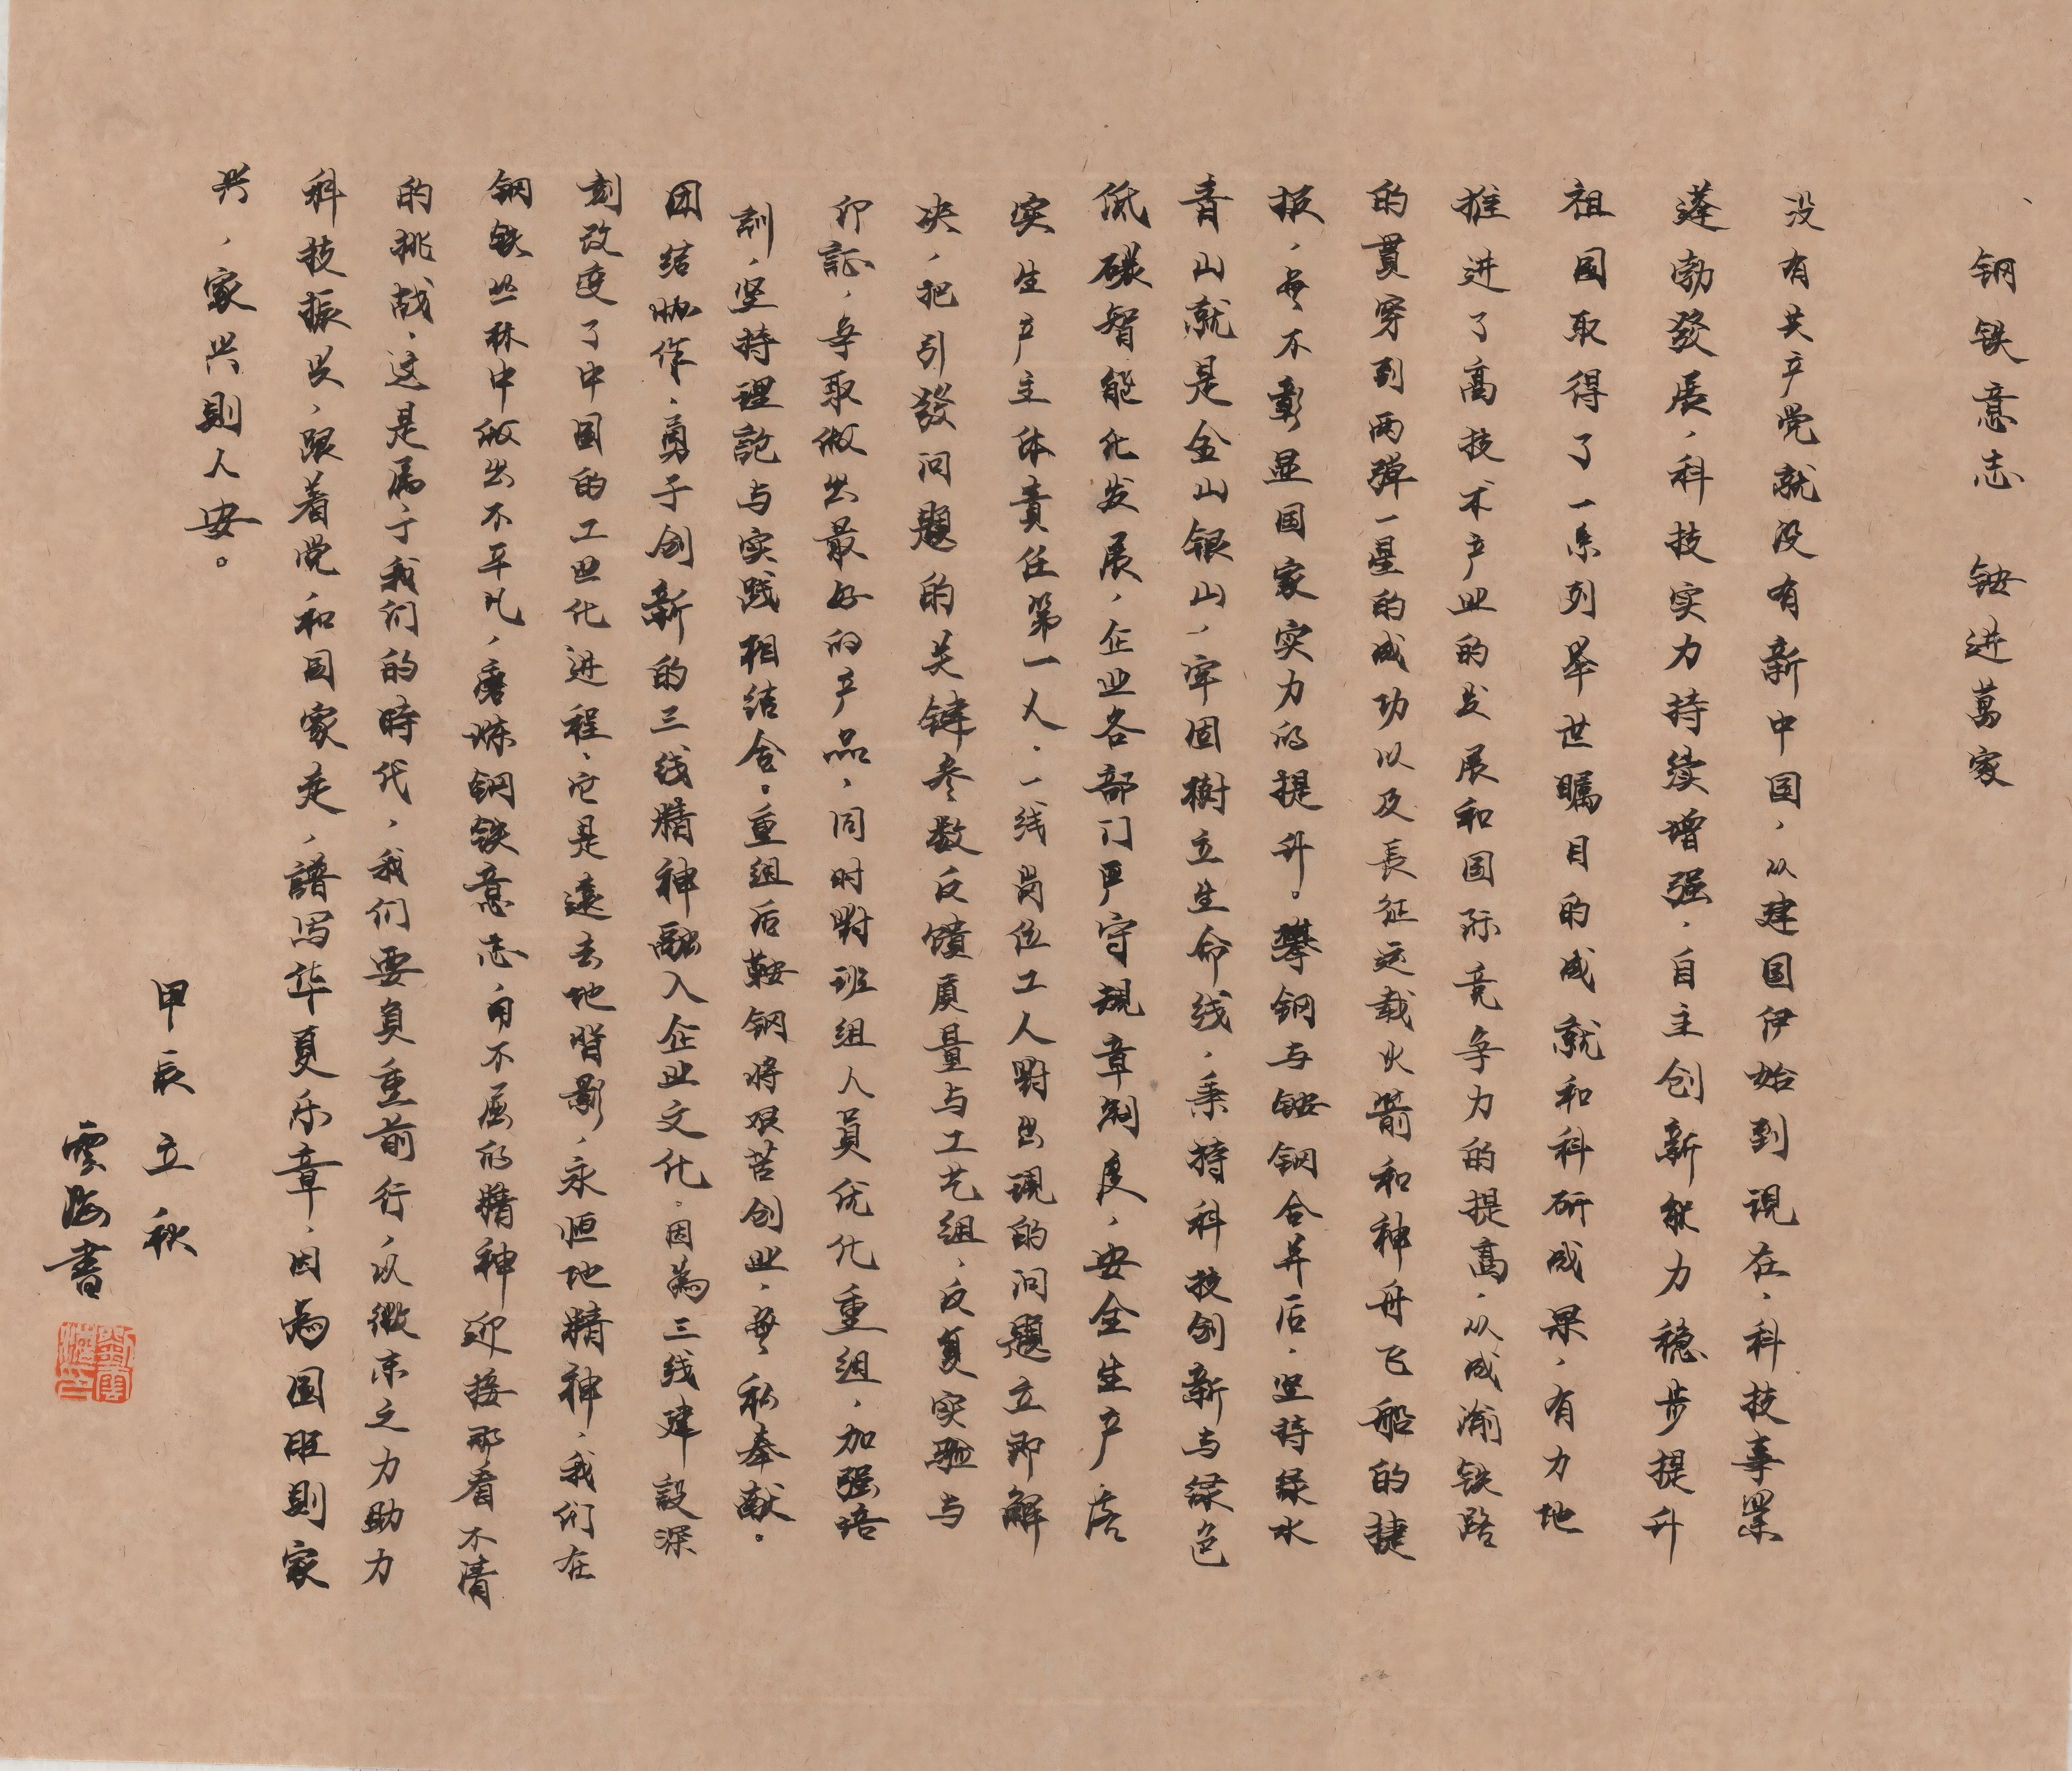 钢铁意志 铵进萬家
没有共产党就没有新中国，从建国伊始到現在，科技事業
蓬勃發展，科技实力持续增强，自主创新能力稳步提升
祖国取得了一系列举世瞩目的成就和科研成果，有力地
推进了高技术产业的发展和国际竞争力的提高，从成渝铁路
的貫穿到两彈一星的成功以及長征运载火箭和神舟飞船的捷
报，無不彰显国家实力的提升。攀钢与鞍钢合并后，坚持绿水
青山就是金山银山，牢固樹立生命线，秉持科技创新与绿色
低碳智能化发展，企业各部门严守規章制度，安全生产落
实生产主体責任第一人，一线岗位工人對出現的问題立即解
决，把引發问題的关键参数反馈质量与工艺组，反复实驗与
印証，争取做出最好的产品，同时對班组人員优化重组，加强培
訓，坚持理論与实践相结合。重组后鞍钢将艰苦创业，無私奉献。
团结协作，勇于创新的三线精神融入企业文化，因為三线建設深
刻改变了中国的工业化进程，它是遠去地背影，永恒地精神，我们在
钢铁丛林中做出不平凡，磨炼钢铁意志，用不屈的精神迎接那看不清
的挑战，这是属于我们的時代，我们要負重前行，以微末之力助力
科技振兴，跟着党和国家走，譜写华夏乐章，因為国旺則家
兴，家兴則人安。
甲辰立秋
雲海書